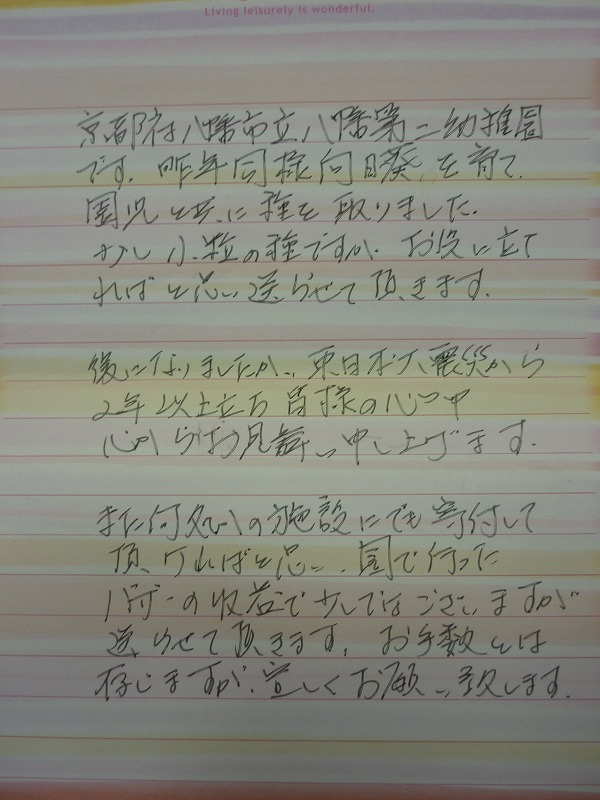 Living leisurely is wonderful.
京都府八幡市立八幡第二幼稚園
です。昨年同様向日葵を育て、
園児と共に種を取りました。
少し小粒の種ですが、お役に立て
ればと思い送らせて頂きます。
後になりましたが、東日本大震災から
2年以上立ち皆様の心中
心からお見舞い申し上げます。
また何処かの施設にでも寄付して
頂ければと思い、園で行った
バザーの収益で少しではございますが
送らせて頂きます。お手数とは
存じますが、宜しくお願い致します。